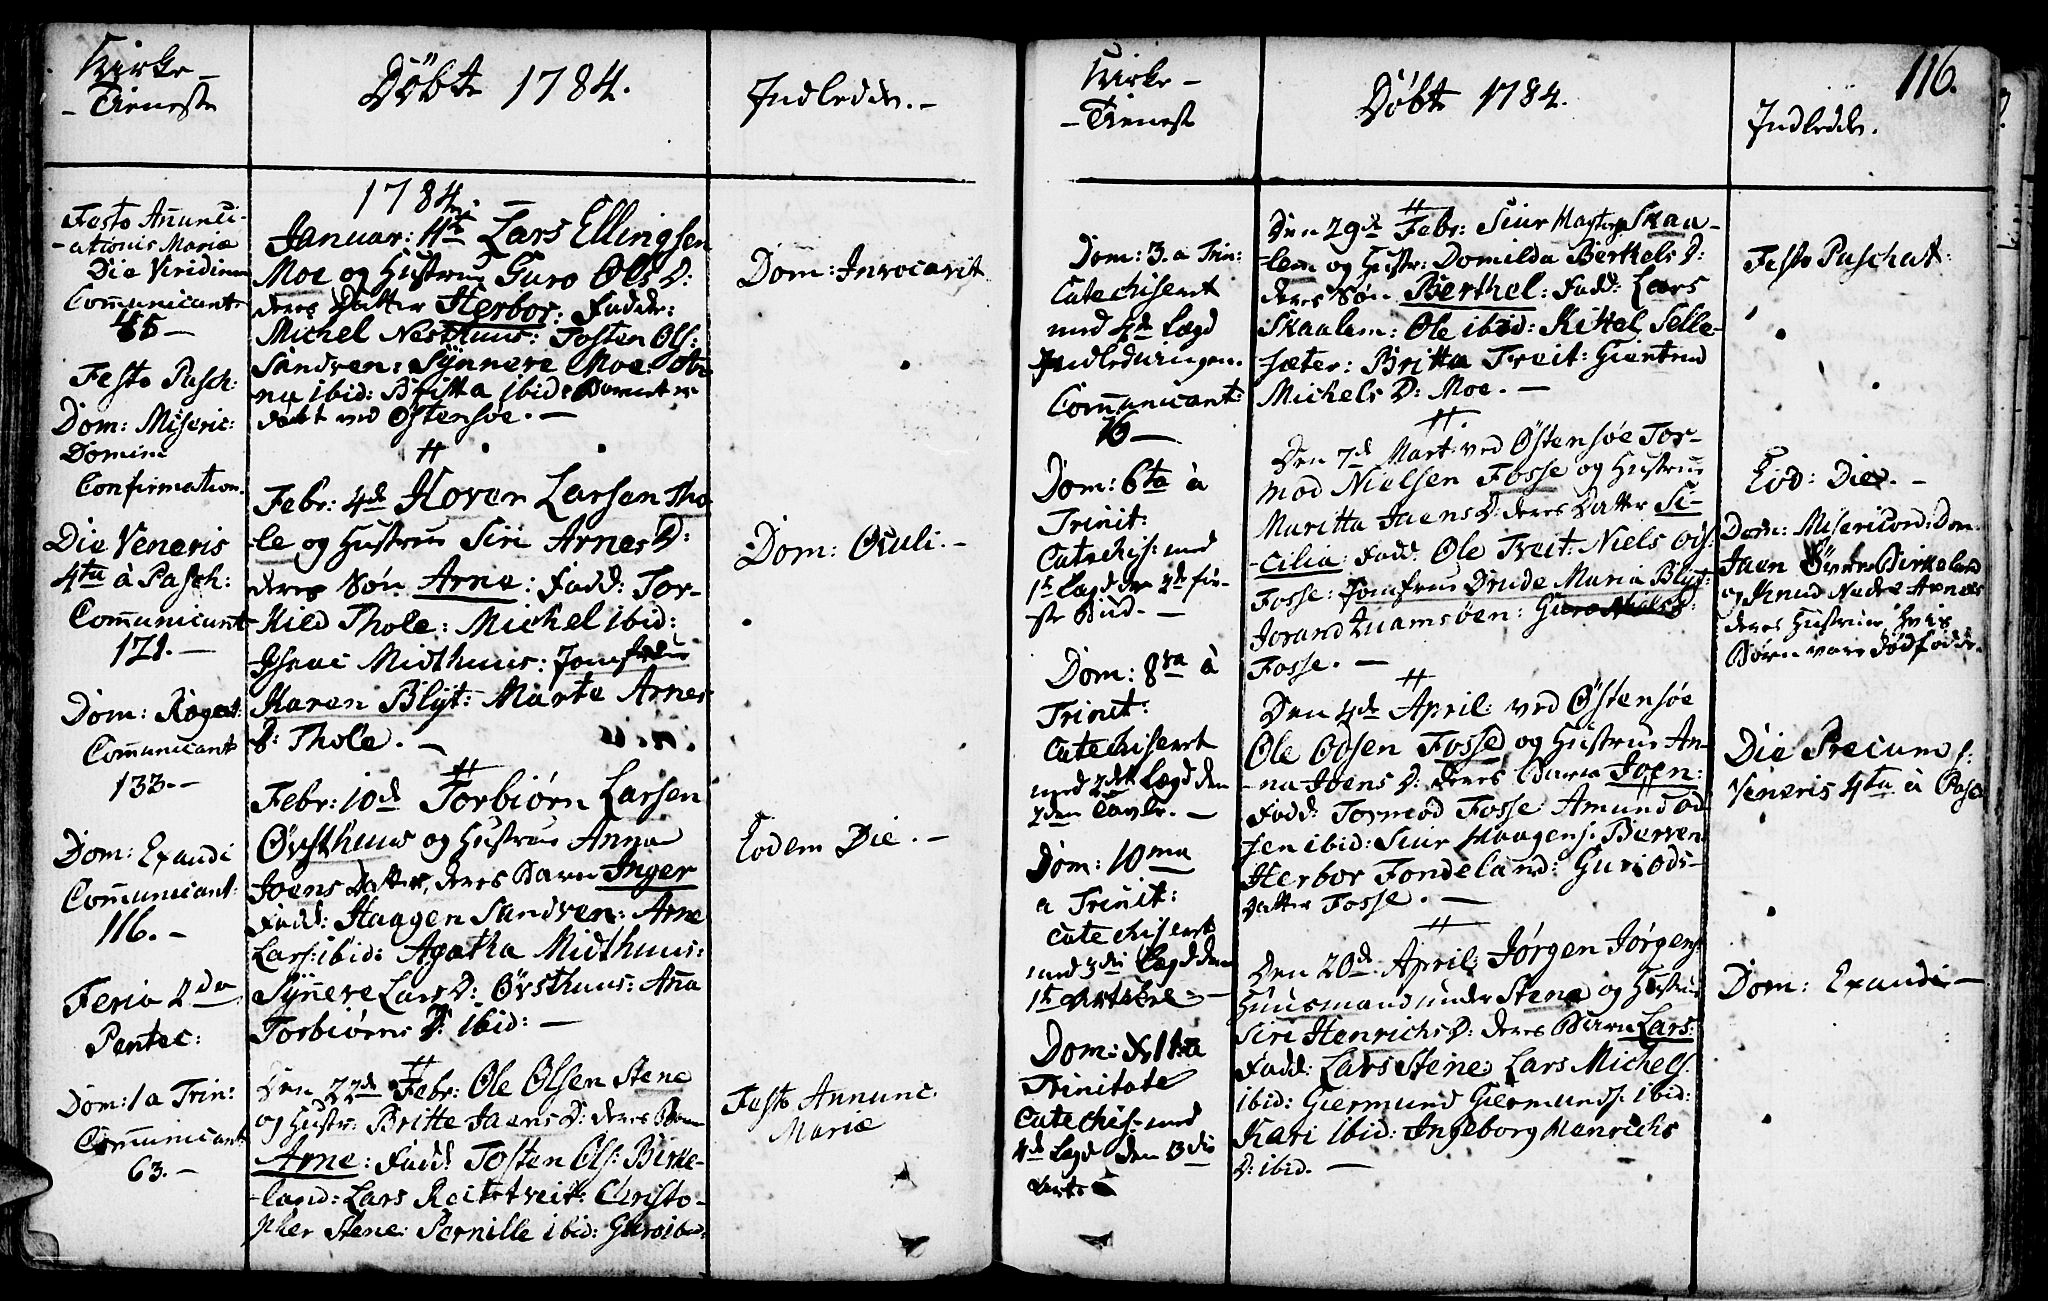 Kirke-
-Tieneste
Døbte 1784.
Indledde.-
Festo Añunci-
-ationis Mariæ
Die Viridium
Com̃unicant:
45-
Festo Pasch:
Dom: Miseric:
Domini
Confirmation.
Die Veneris
4ta à Pasch:
Com̃unicant
121.-
Dom: Rogat:
Com̃unicant
133.-
Dom: Exaudi
Com̃unicant:
116.-
Feria 2da
Pentec:
Dom: 1 a Trin:
Com̃unicant:
63.-
1784.-
Januar: 4de Lars Ellingsen
Moe og Hustrue Guro Ols D:
deres Datter Herbor: Fadde:
Michel Nesthuus: Tosten Ols:
Sandven: Synneve Moe:
na ibid: Britta ibid: Barnet er
døbt ved Østensøe.-
#
Febr: 4de Hover Larsen Tho-
-le og Hustrue Siri Arnes D:
deres Søn Arne: Fadd: Tor-
-kild Thole: Michel ibid:
Isaac Midthuus: Jomfrue
Karen Blyt: Marte Arnes
D: Thole.-
#
Febr: 10de Torbiørn Larsen
Øvsthuus og Hustrue Anna
Joens Datter, deres Barn Inger
Fadd: Haagen Sandven: Arne
Lars: ibid: Agatha Midthuus:
Synneve Lars D: Øvsthuus: Aña
Torbiørns D: ibid:-
#
Den 22de Febr: Ole Olsen Stene
og Hustr: Britte Jaens D: deres Barn
Arne: Fadd: Tosten Ols: Birke-
-land: Lars Reitetveit: Christo-
pher Stene: Pernille ibid: Guro ibid:
Dom: Invocavit
Dom: Oculi.-
Eodem Die.-
Festo Annunc:
Mariæ
116.
Kirke-
-Tienest
Døbte 1784.
Indledde.
Dom: 3. a Trin:
Catechisert
med 4de Lægd
Indledningen.
Com̃unicant:
76-
Dom: 6ta à
Trinit:
Catechis: med
1te Lægd de 2de før-
ste Bud.-
Dom: 8va à
Trinit:
Catechisert
med 2det Lægd den
2den Tavle.-
Dom: 10ma
a Trinit:
Catechisert
med 3die Lægd den
1te Artikel.-
Dom: 11. a
Trinitate
Catechis: med
4de Lægd den 3die
Arti
#
Den 29de Febr: Siur Skaa-
-lem og Hustr: Domilda Berthels D:
deres Søn Berthel: Fadd: Lars
Skaalem: Ole ibid: Kittel Selle-
sæter: Britta Treit: Giertrud
Michels D: Moe.-
#.
Den 7de Mart: ved Østensøe Tor-
mod Nielsen Fosse og Hustrue
Maritta Jaens D: deres Datter Si-
-cilia: Fadd: Ole Treit: Niels Ols:
Fosse: Jomfrue Drude Maria Blyt:
Jorand Quamsøen: Guro Niels D:
Fosse.-
#
Den 4de April: ved Østensøe
Ole Odsen Fosse og Hustrue An-
-na Joens D: deres Barn Joen:
Fadd: Tormod Fosse: Amund Od-
sen ibid: Siur Haagens: Berven
Herbor Fondeland: Guri Ods-
Datter Fosse.-
#
Den 20de April: Jørgen Jørgens:
Huusmand under Stene og Hustrue
Siri Henrichs D: deres Barn Lars:
Fadd: Lars Stene: Lars Michels:
ibid: Giermund Giermunds: ibid:
Kari ibid: Ingeborg Henrichs
D: ibid.-
Festo Paschat:
Eod: Die.-
Dom: Misericord: Dom:
Jaen Øvre Birkeland
og Knud Nedre Arnæs
deres Hustruer, hvis
Børn vare dødfødde.
Die Precum s:
Veneris 4ta à Pasc
Dom: Exaudi-